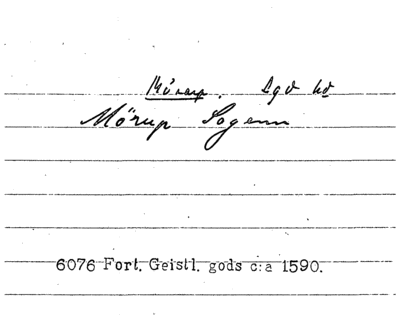 Mörup. Lgd hd
Mörup Sogenn
6076 Fort. Geistl. gods c:a 1590.